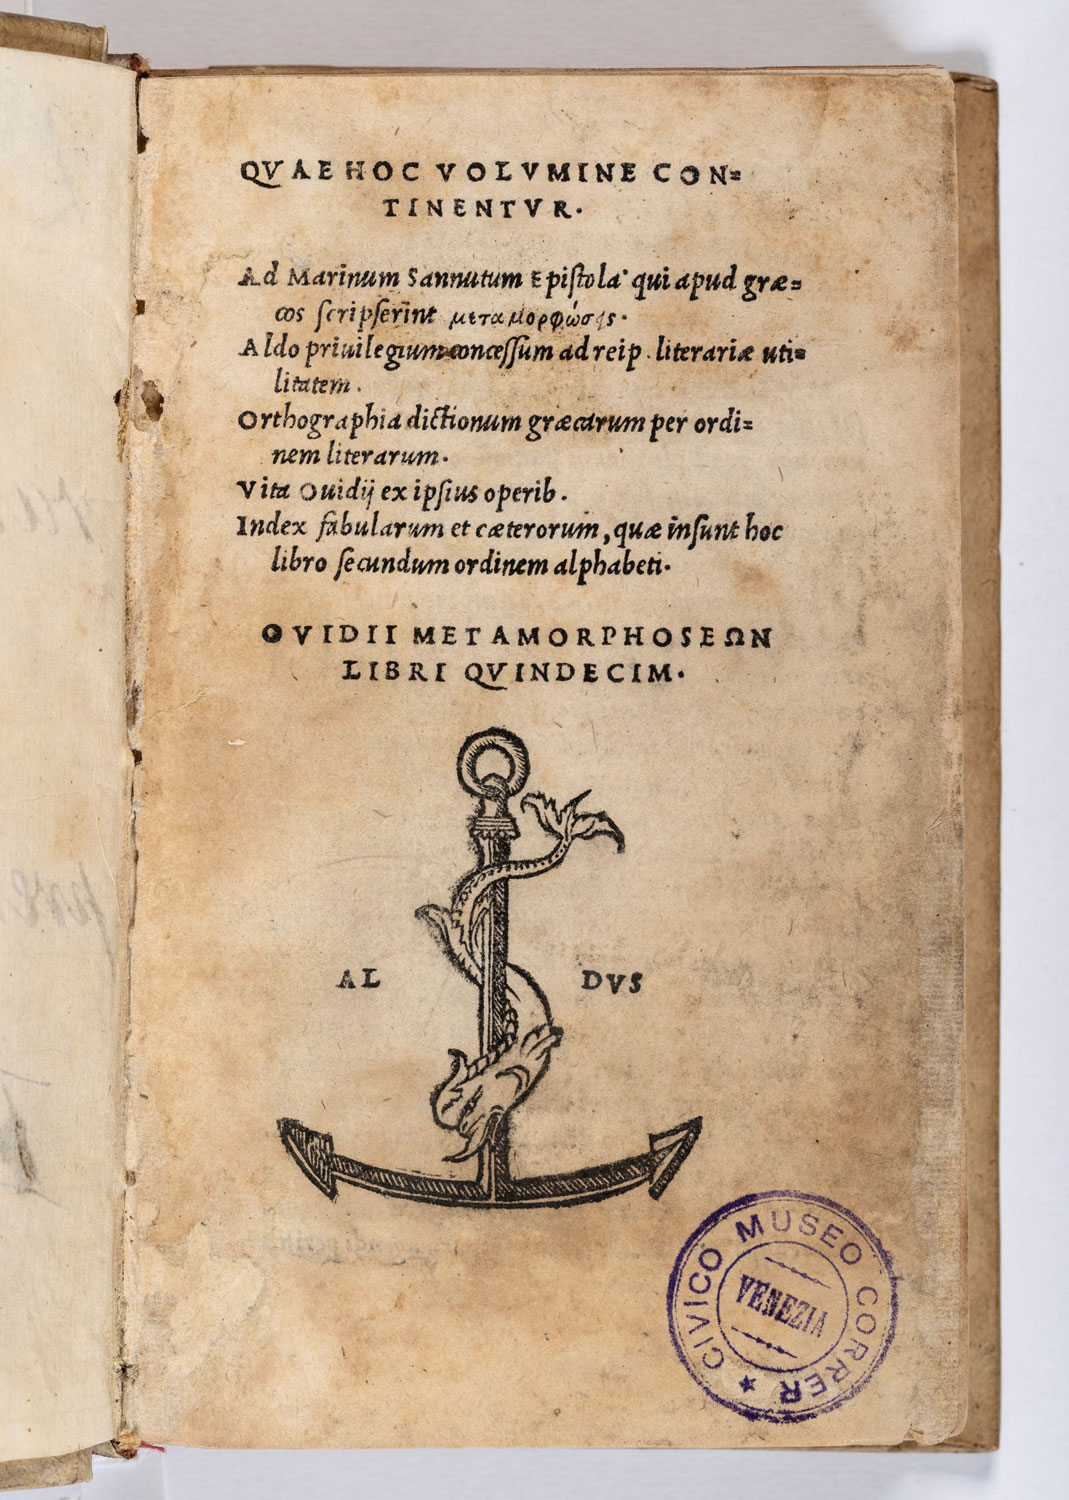 QVAE HOC VOLVMINE CON=
TINENTVR.
Ad Marinum Sannutum Epistola qui apud græ=
cos scripserint μεταμορφώσεις.
Aldo priuilegium concessum ad reip. literariæ uti=
litatem.
Orthographia dictionum græcarum per ordi=
nem literarum.
Vita Ouidij ex ipsius operib.
Index fabularum et cæterorum, quæ insunt hoc
libro secundum ordinem alphabeti.
OVIDII METAMORPHOSEΩN
LIBRI QVINDECIM.
AL DVS
CIVICO MUSEO CORRER
VENEZIA